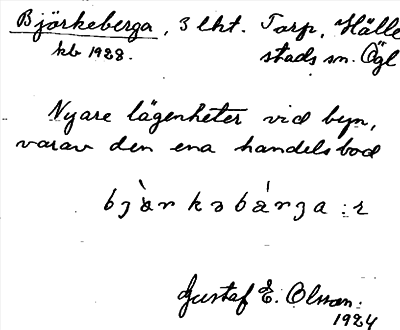 Björkeberga, 3 lht. Torp, Hälle
kb 1928. stads sn. Ögl
Nyare lägenheter vid byn,
varav den ena handelsbod
bjàrkəbárga :r
Gustaf E. Olsson.
1924